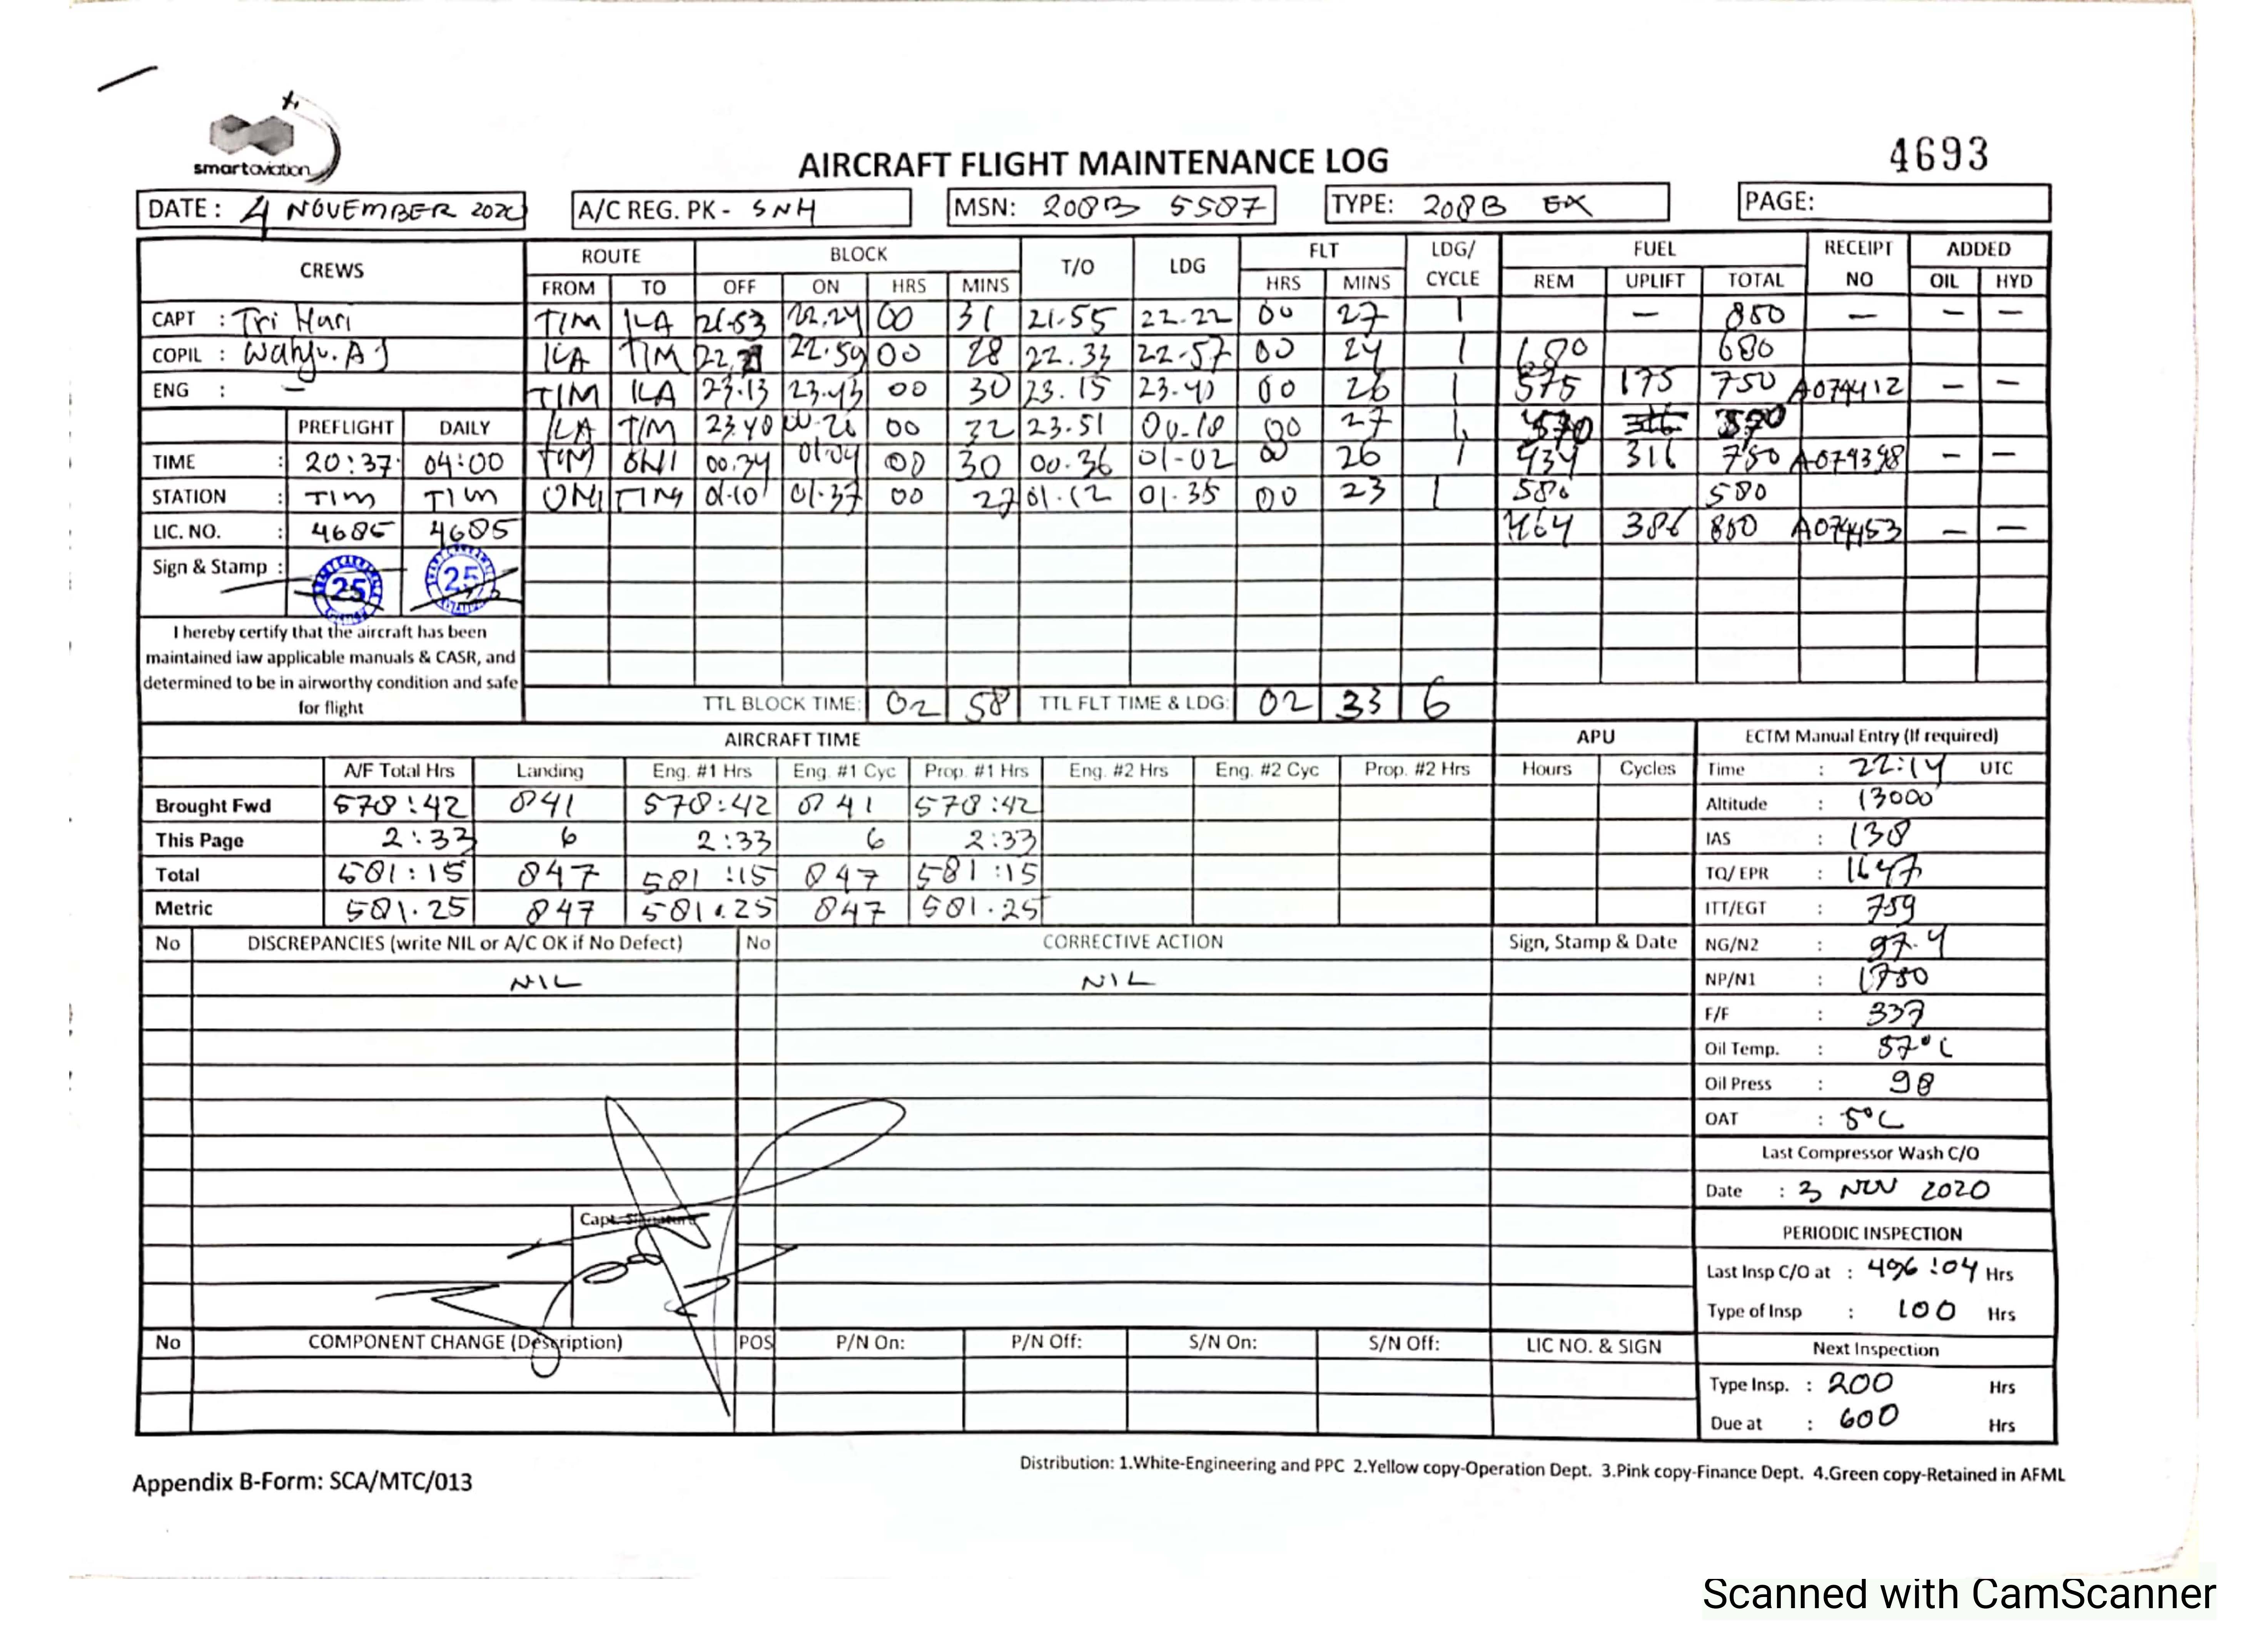 smartaviation
AIRCRAFT FLIGHT MAINTENANCE LOG
4693
DATE: 4 NOVEMBER 2020 A/C REG. PK - SNH MSN: 208B 5587 TYPE: 208B EX PAGE:
CREWS ROUTE BLOCK T/O LDG FLT LDG/ CYCLE FUEL RECEIPT NO ADDED
FROM TO OFF ON HRS MINS HRS MINS REM UPLIFT TOTAL OIL HYD
CAPT : Tri Hari TIM ILA 21.53 22.24 00 31 21.55 22.22 00 27 1 — 850 — — —
COPIL : Wahyu. AJ ILA TIM 22.59 00 28 22.33 22.57 00 24 1 680 680
ENG : — TIM ILA 23.13 23.43 00 30 23.15 23.41 00 26 1 575 175 750 A074412 — —
PREFLIGHT DAILY ILA TIM 00 32 23.51 00.18 00 27 1 570 570
TIME : 20:37 04:00 TIM 00.34 01.04 00 30 00.36 01.02 00 26 1 434 316 750 A074398 — —
STATION : TIM TIM TIM 01.10 01.37 00 27 01.12 01.35 00 23 1 580 580
LIC. NO. : 4685 4685 464 386 850 A074453 — —
Sign & Stamp : 25 25
I hereby certify that the aircraft has been
maintained iaw applicable manuals & CASR, and
determined to be in airworthy condition and safe
for flight
TTL BLOCK TIME: 02 58 TTL FLT TIME & LDG: 02 33 6
AIRCRAFT TIME APU ECTM Manual Entry (If required)
A/F Total Hrs Landing Eng. #1 Hrs Eng. #1 Cyc Prop. #1 Hrs Eng. #2 Hrs Eng. #2 Cyc Prop. #2 Hrs Hours Cycles Time : 22:14 UTC
Brought Fwd 578:42 841 578:42 841 578:42 Altitude : 13000
This Page 2:33 6 2:33 6 2:33 IAS : 138
Total 581:15 847 581:15 847 581:15 TQ/ EPR : 1647
Metric 581.25 847 581.25 847 581.25 ITT/EGT : 759
No DISCREPANCIES (write NIL or A/C OK if No Defect) No CORRECTIVE ACTION Sign, Stamp & Date NG/N2 : 97.4
NIL NIL NP/N1 : 1750
F/F : 337
Oil Temp. : 57°C
Oil Press : 98
OAT : 5°C
Last Compressor Wash C/O
Date : 3 NOV 2020
Capt. Signature
PERIODIC INSPECTION
Last Insp C/O at : 496:04 Hrs
Type of Insp : 100 Hrs
No COMPONENT CHANGE (Description) POS P/N On: P/N Off: S/N On: S/N Off: LIC NO. & SIGN Next Inspection
Type Insp. : 200 Hrs
Due at : 600 Hrs
Distribution: 1.White-Engineering and PPC 2.Yellow copy-Operation Dept. 3.Pink copy-Finance Dept. 4.Green copy-Retained in AFML
Appendix B-Form: SCA/MTC/013
Scanned with CamScanner